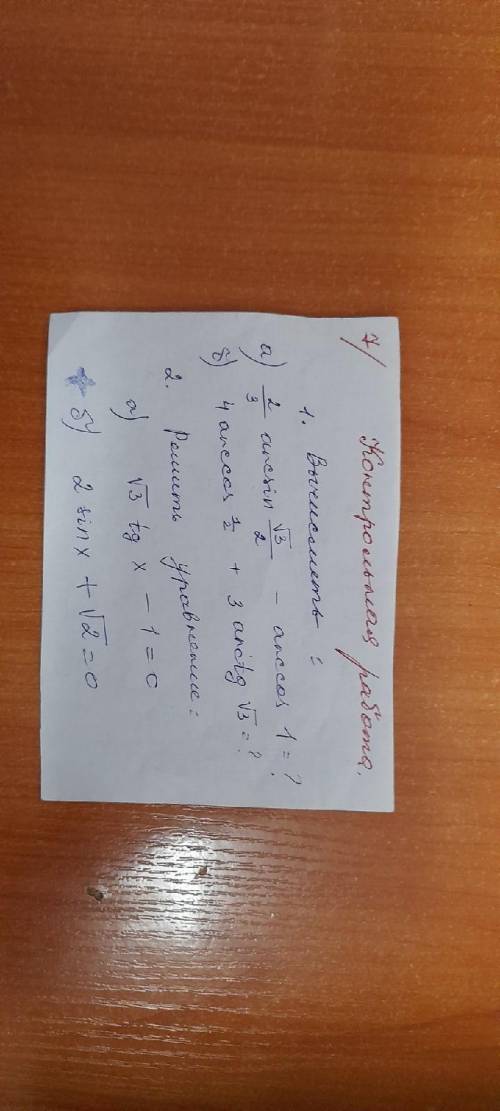 7/ Контрольная работа.
1. Вычислить:
а) 2/3 arcsin √3/2 - arccos 1 = ?
б) 4 arccos 1/2 + 3 arctg √3 = ?
2. Решить уравнение:
а) √3 tg x - 1 = 0
б) 2 sin x + √2 = 0